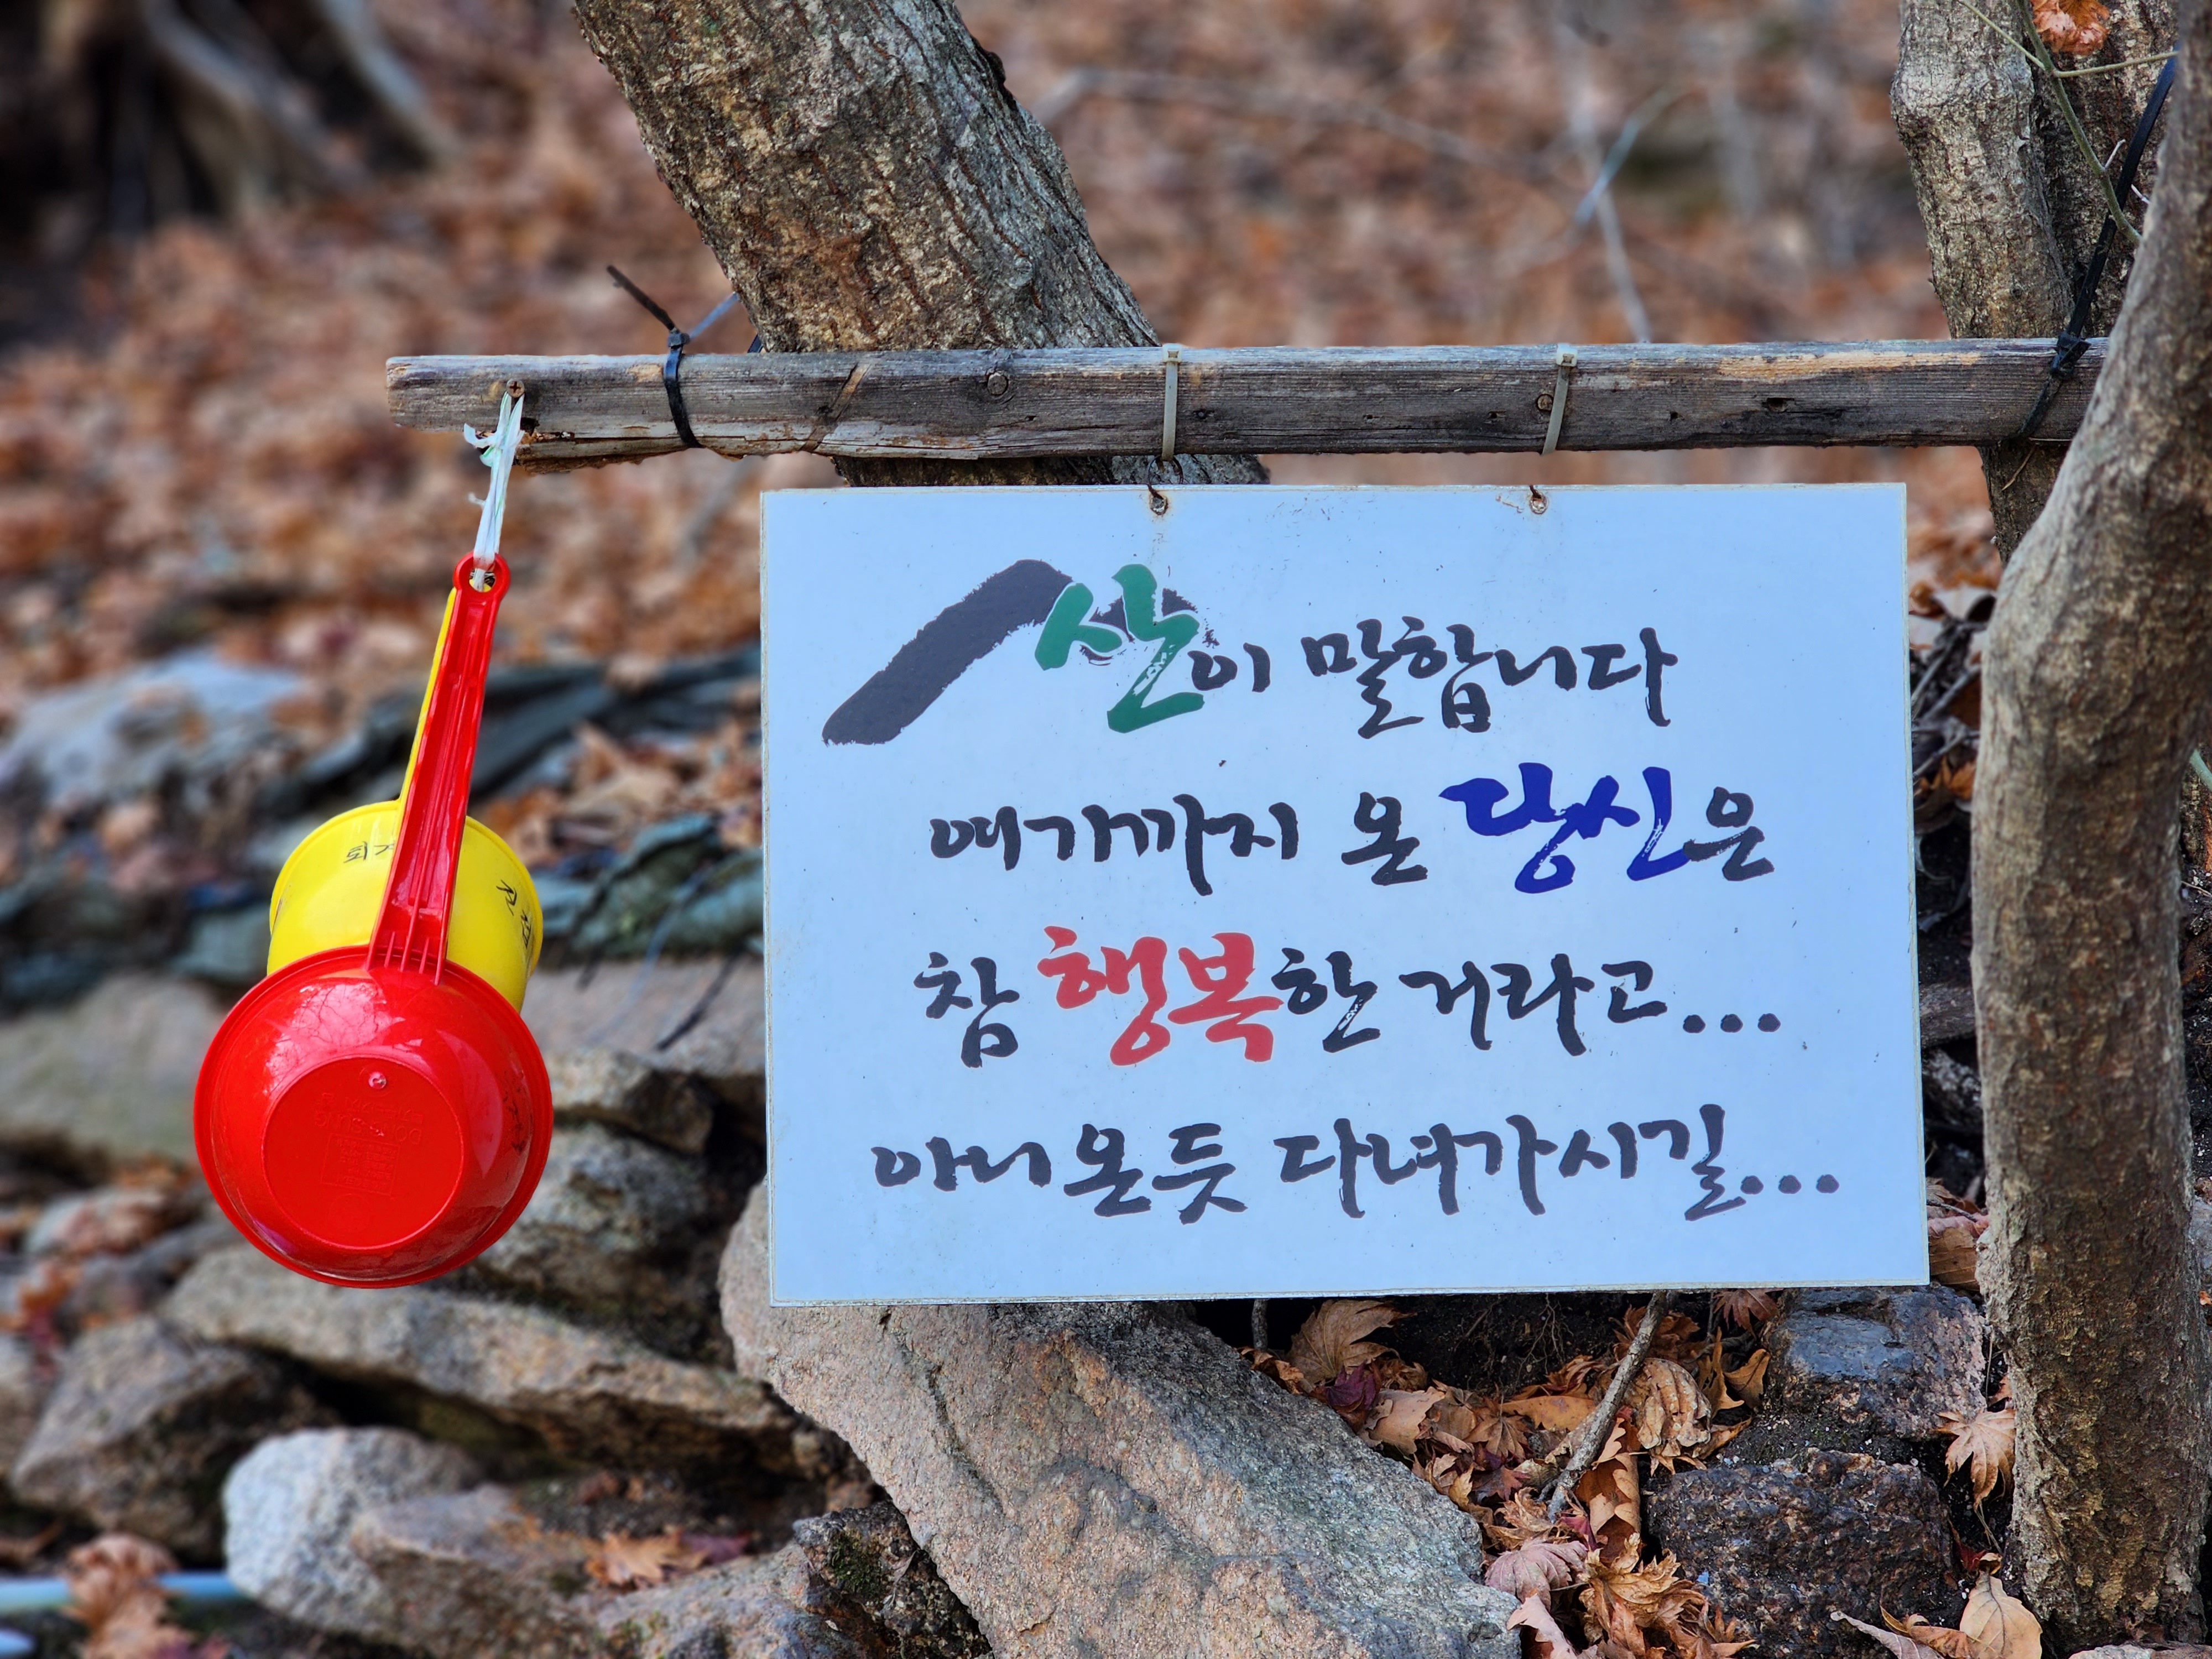 산이 말합니다
여기까지 온 당신은
참 행복한 거라고...
아니온듯 다녀가시길...